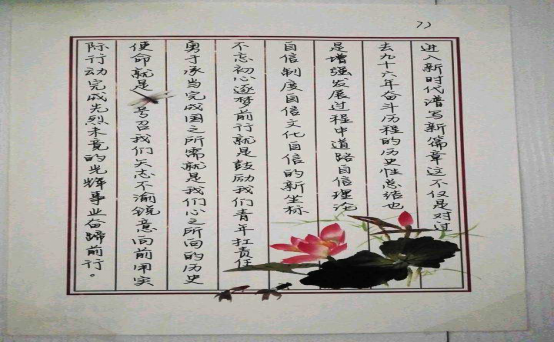 进入新时代谱写新篇章这不仅是对过
去九十六年奋斗历程的历史性总结也
是增强发展过程中道路自信理论
自信制度自信文化自信的新坐标
不忘初心逐梦前行就是鼓励我们青年扛责任
勇于承当完成国之所需就是我们心之所向的历史
使命就是号召我们矢志不渝锐意向前用实
际行动完成先烈未竟的光辉事业奋蹄前行。